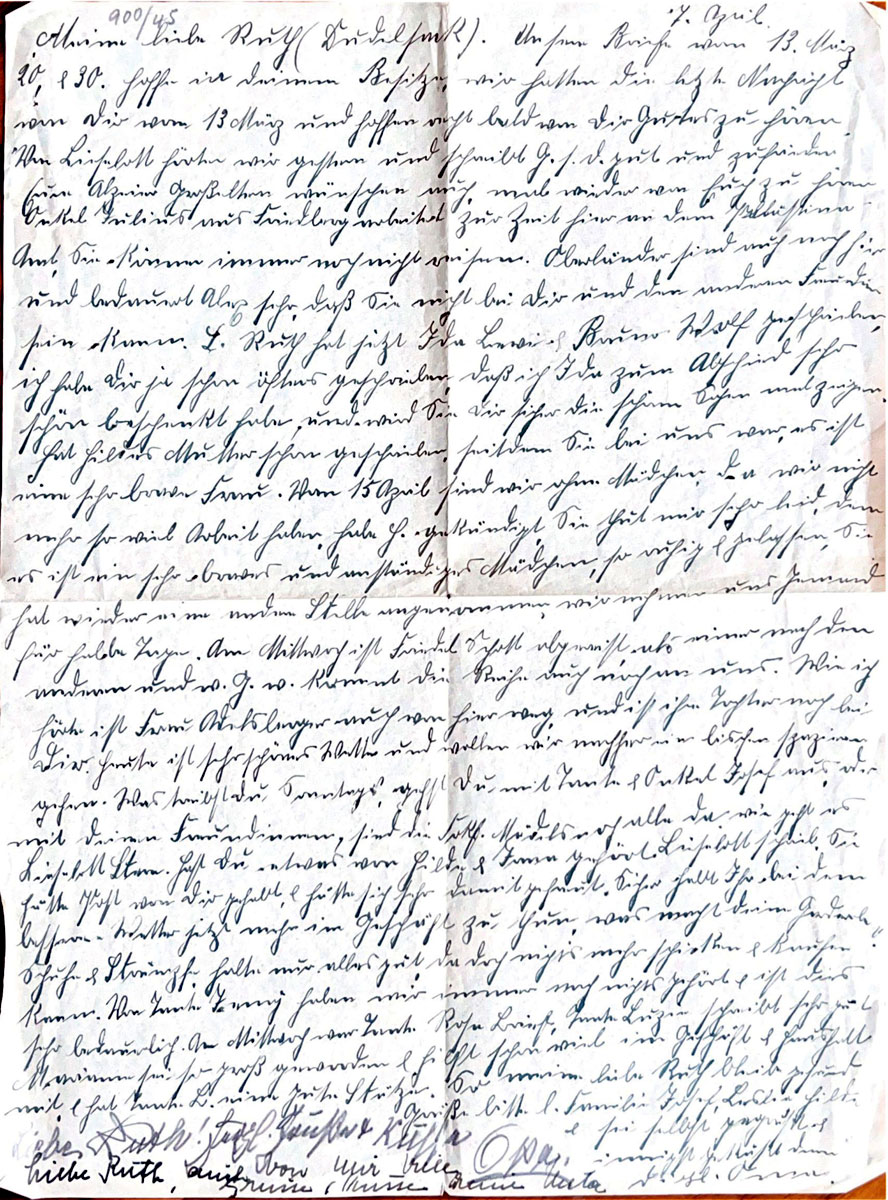 900/45
7. April.
Meine liebe Ruth (Dudelsack). Unsere Briefe vom 13. März
20, & 30. hoffe in deinem Besitze, wir hatten die letzte Nachricht
von Dir vom 13 März und hoffen recht bald von Dir Gutes zu hören.
Von Lieselott hörten wir gestern und schreibt G. s. d. gut und zufrieden
Alzeier Großeltern wünschen auch, mal wieder von Euch zu hören
Onkel Julius aus Friedberg arbeitet zur Zeit hier an dem Palästina-
Amt, Sie können immer noch nicht reisen. Oberländer sind auch noch hier
und bedauert Alex sehr, daß Sie nicht bei Dir und den anderen Freunden
sein kann. L. Ruth hat jetzt Ida Levi & Bruno Wolf geschrieben,
ich habe Dir ja schon öfters geschrieben, daß ich Ida zum Abschied sehr
schön beschenkt habe, und wird Sie Dir sicher die schönen Sachen mal zeigen.
Hat Hildes Mutter schon geschrieben, seitdem Sie bei uns war, es ist
eine sehr brave Frau. Vom 15 April sind wir ohne Mädchen, da wir nicht
mehr so viel Arbeit haben, habe H. gekündigt, Sie thut mir sehr leid, denn
es ist ein sehr braves und anständiges Mädchen, so ruhig & gelassen, Sie
hat wieder eine andere Stelle angenommen, wir nehmen uns Jemand
für halbe Tage. Am Mittwoch ist Friedel Schott abgereist, als einer nach den
anderen und w. G. w. kommt die Reihe auch noch an uns. Wie ich
hörte ist Frau auch von hier weg, und ist ihre Tochter noch bei
Dir. Heute ist sehr schönes Wetter und wollen wir nachher ein bischen spazieren
gehen. Was treibst Du Sonntags, gehst Du mit Tante & Onkel Josef aus, oder
mit deinen Freundinnen, sind die Mädels noch alle da, wie geht es
Lieselott Stern. Hast Du etwas von Hilde & gehört. Lieselott schrieb, Sie
hätte Post von Dir gehabt & hätte sich sehr damit gefreut. Sicher habt Ihr bei dem
besseren Wetter jetzt mehr im Geschäft zu thun, was macht deine Garderobe
Schuhe & Strümpfe, halte nur alles gut, da doch nichts mehr schicken & kaufen
kann. Von Tante haben wir immer noch nichts gehört & ist dies
sehr bedauerlich. Am Mittwoch war Tante Rosa Brief, Tante schreibt sehr gut
Marianne sei so groß geworden & hilft schon viel im Geschäft & Haushalt
mit & hat Tante L. eine gute Stütze. So meine liebe Ruth bleib gesund
Grüße bitte l. Familie Josef, Hilde
& sei selbst gegrüßt &
innigst geküßt dein
d. l. Oma.
Liebe Ruth! Grüße & Küsse
Opa.
Liebe Ruth, auch von mir viele
Grüße, Küsse